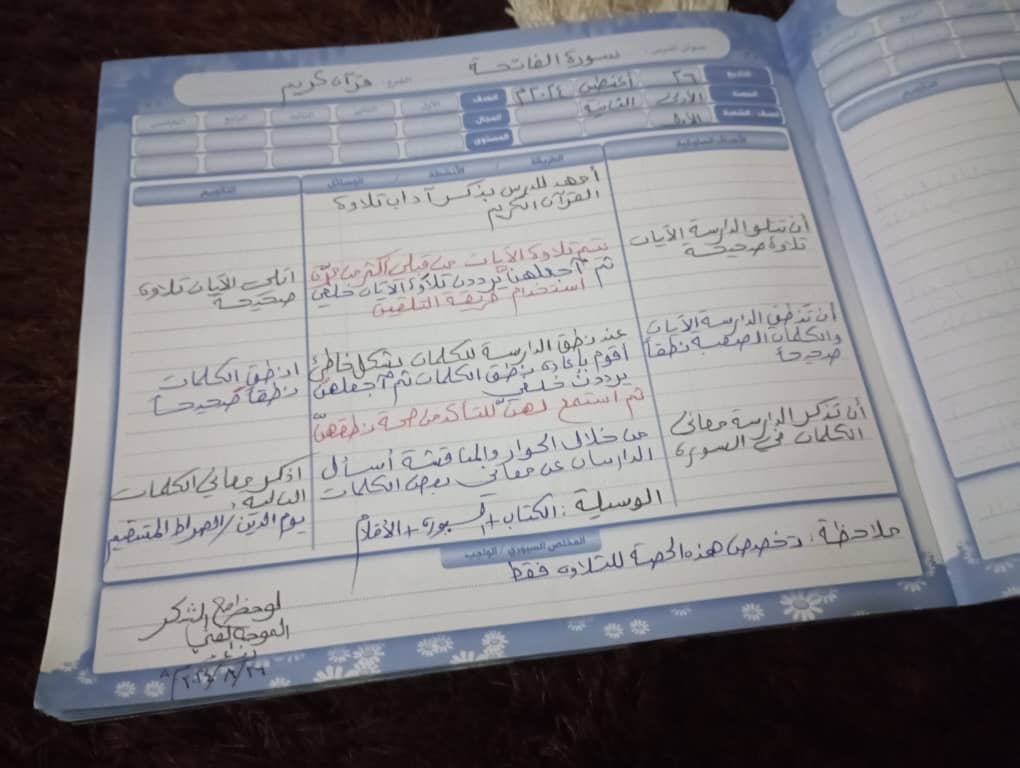 عنوان الدرس: سورة الفاتحة الفرع: قرآن كريم
التاريخ ٢٦ أغسطس ٢٠٢٤م
الصف الأولى الثانية
الأول
الصف
المجال
المستوى
الأول الثاني الثالثة الرابع الخامس
الأهداف السلوكية
الطريقة / الأنشطة / الوسائل
التقويم
أن تتلو الدارسة الآيات
تلاوة صحيحة
أن تنطق الدارسة الآيات
والكلمات الصعبة نطقاً
صحيحاً
أن تذكر الدارسة معاني
الكلمات في السورة
أمهد للدرس بذكر آداب تلاوة
القرآن الكريم
تتم تلاوة الآيات من قبلي أكثر من مرة
ثم أجعلهن يرددن تلاوة الآيات خلفي
استخدام طريقة التلقين
عند نطق الدارسة للكلمات بشكل خاطئ
أقوم بإعادة نطق الكلمات ثم أجعلهن
يرددن خلفي
ثم أستمع لهن للتأكد من صحة نطقهن
من خلال الحوار والمناقشة أسأل
الدارسات عن معاني بعض الكلمات
الوسيلة: الكتاب + السبورة + الأقلام
اتلي الآيات تلاوة
صحيحة
انطق الكلمات
نطقاً صحيحاً
اذكر معاني الكلمات
التالية:
يوم الدين / الصراط المستقيم
الملخص السبوري / الواجب
ملاحظة: تخصص هذه الحصة للتلاوة فقط
لوحظ مع الشكر
الموجه الفني
٢٠٢٤/٨/٢٦م